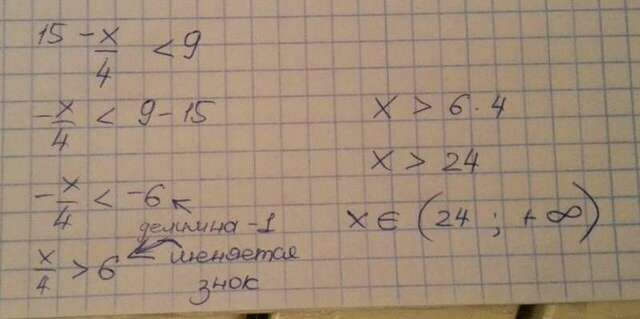 15 - x/4 < 9
-x/4 < 9-15
-x/4 < -6
делим на -1
x/4 > 6
меняется
знак
x > 6·4
x > 24
x ∈ (24 ; +∞)